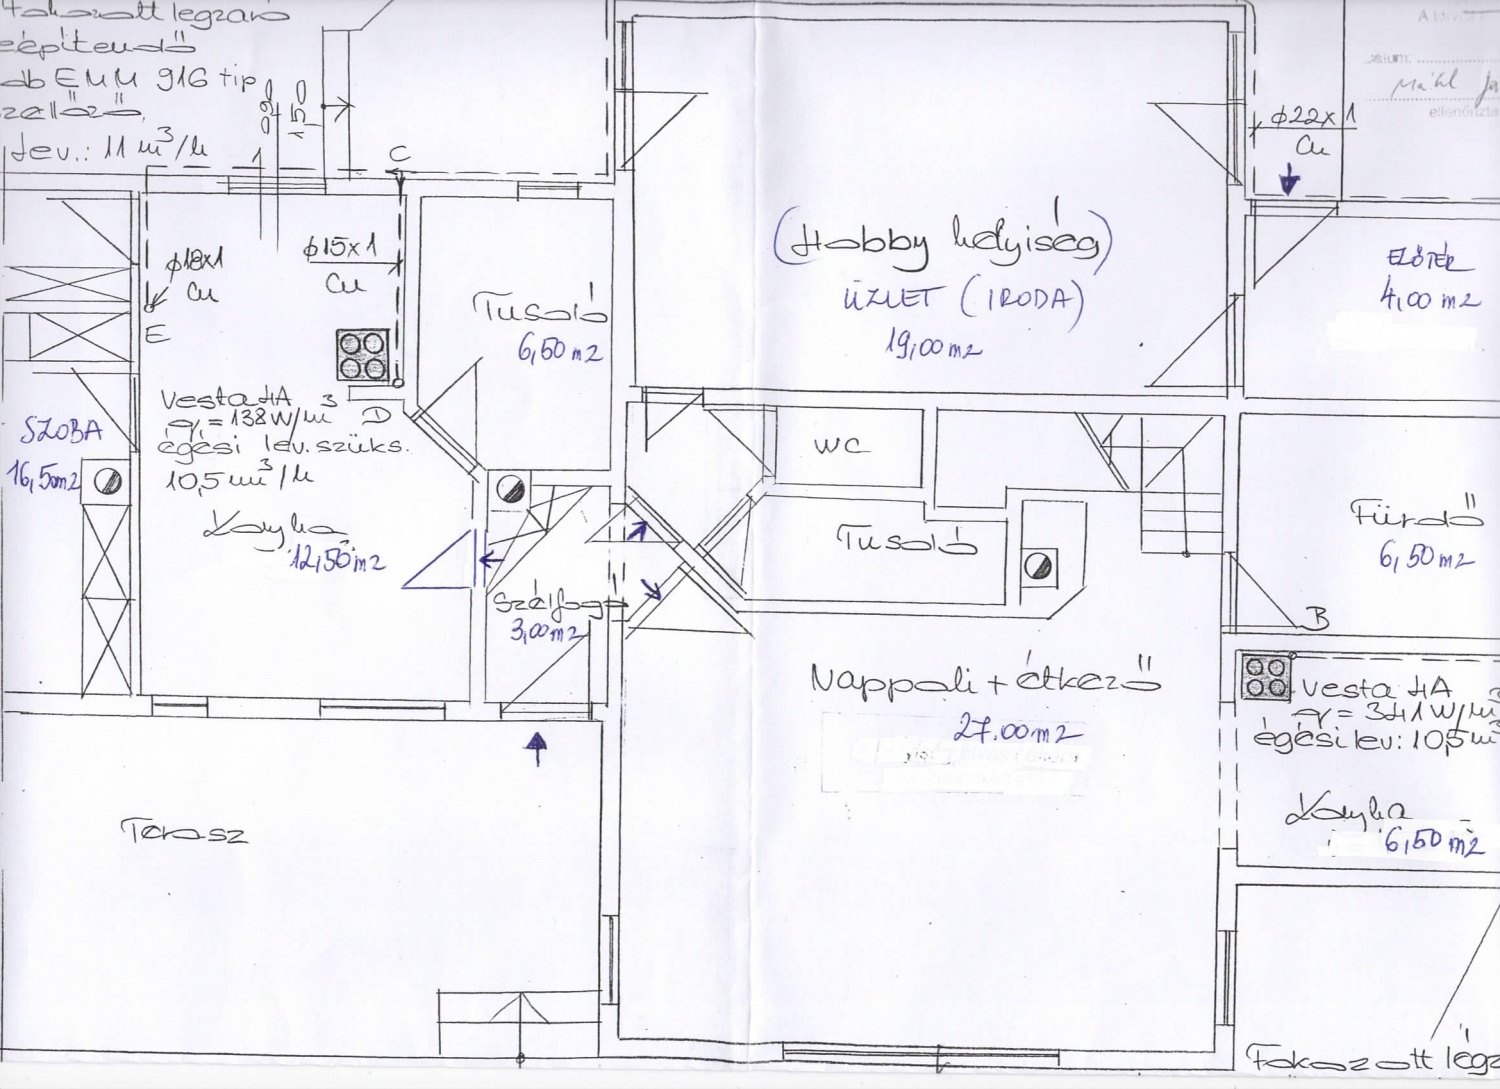 Fokozott légzáró
beépítendő
db EMM 916 tip
szellőző,
lev.: 11 m³/h
1
90
150
C
ϕ22x1
Cu
ellenőrizte
ϕ18x1
Cu
E
ϕ15x1
Cu
Tusoló
6,50 m2
(Hobby helyiség)
ÜZLET (IRODA)
19,00 m2
ELŐTÉR
4,00 m2
SZOBA
16,50m2
Vesta HA
q = 138 W/m³
D
égési lev. szüks.
10,5 m³/h
Konyha
12,50 m2
WC
Tusoló
Fürdő
6,50 m2
Szélfogó
3,00 m2
B
Nappali + étkező
27.00 m2
Vesta HA
q = 341 W/m³
égési lev: 10,5 m³
Konyha
6,50 m2
Terasz
Fokozott légz